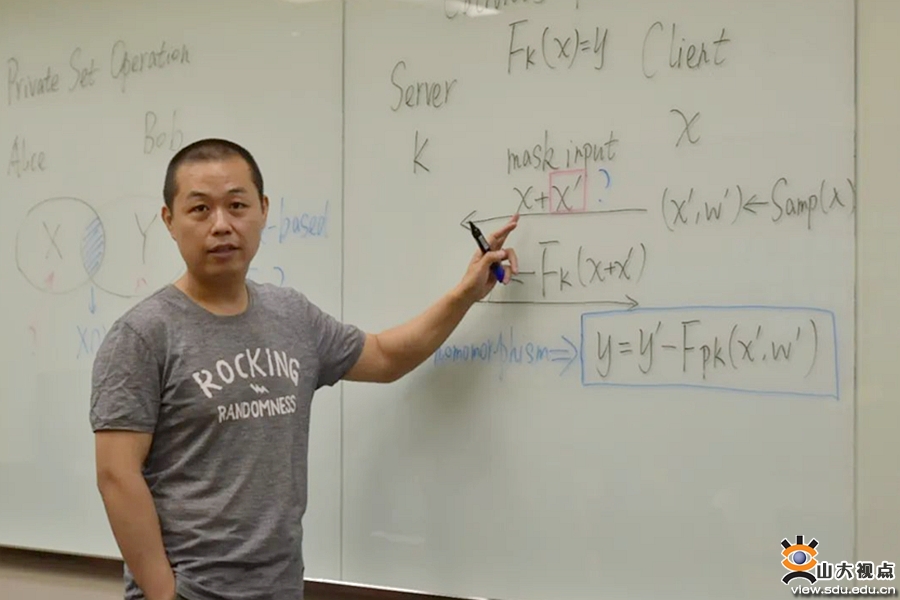 Private Set Operation
Alice
Bob
X
Y
-based
?
?
F_k(x)=y
Server
Client
k
x
mask input
x+x' ?
(x',w')←Samp(λ)
←F_k(x+x')
homomorphism⇒
y=y'−F_pk(x',w')
ROCKING
RANDOMNESS
山大视点
view.sdu.edu.cn